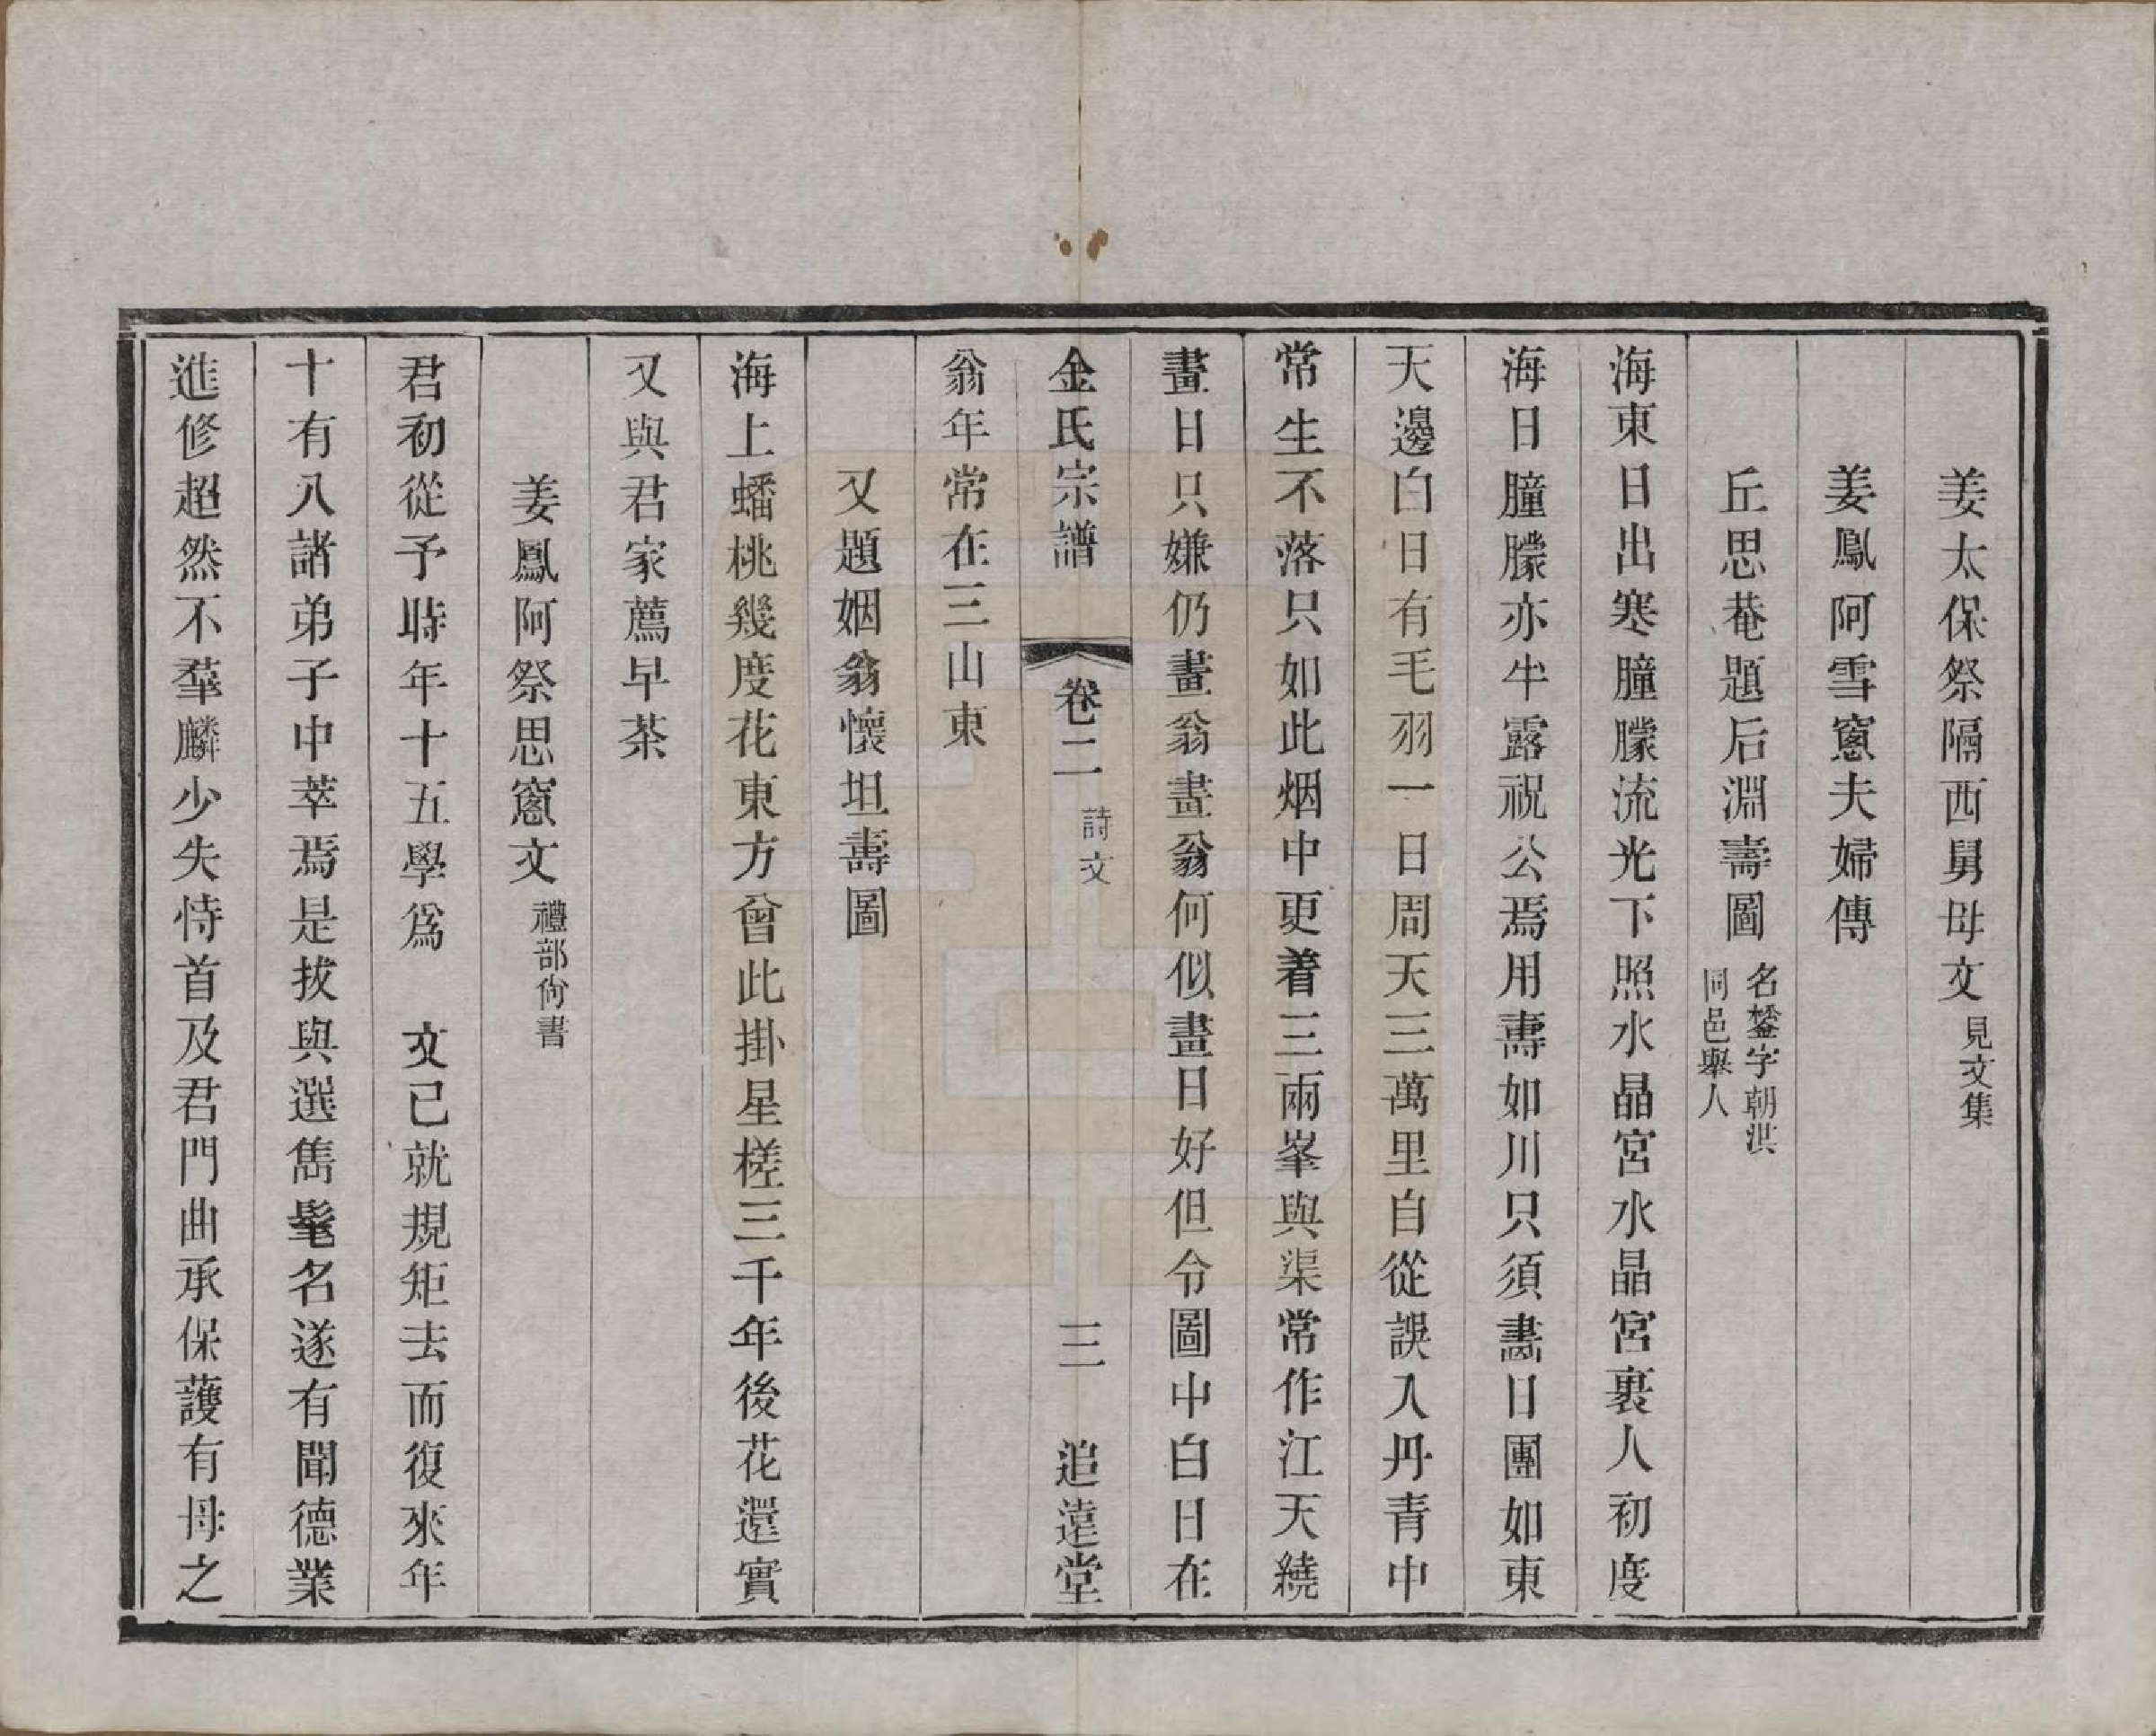 姜太保祭隔西舅母文見文集
姜鳳阿雪窻夫婦傳
丘思菴題后淵壽圖名鍫字朝淇同邑舉人
海東日出寒朣朦流光下照水晶宮水晶宮裏人初度
海日朣朦亦半露祝公焉用壽如川只須畵日團如東
天邊白日有毛羽一日周天三萬里自從誤入丹青中
常生不落只如此烟中更着三兩峯與渠常作江天繞
畫日只嫌仍畫翁畫翁何似畫日好但令圖中白日在
金氏宗譜 卷二 詩文 三 追遠堂
翁年常在三山東
又題姻翁懷坦壽圖
海上蟠桃幾度花東方曾此掛星槎三千年後花還實
又與君家薦早茶
姜鳳阿祭思窻文禮部尙書
君初從予時年十五學爲 文已就規矩去而復來年
十有八諸弟子中萃焉是拔與選雋髦名遂有聞德業
進修超然不羣麟少失恃首及君門曲承保護有母之